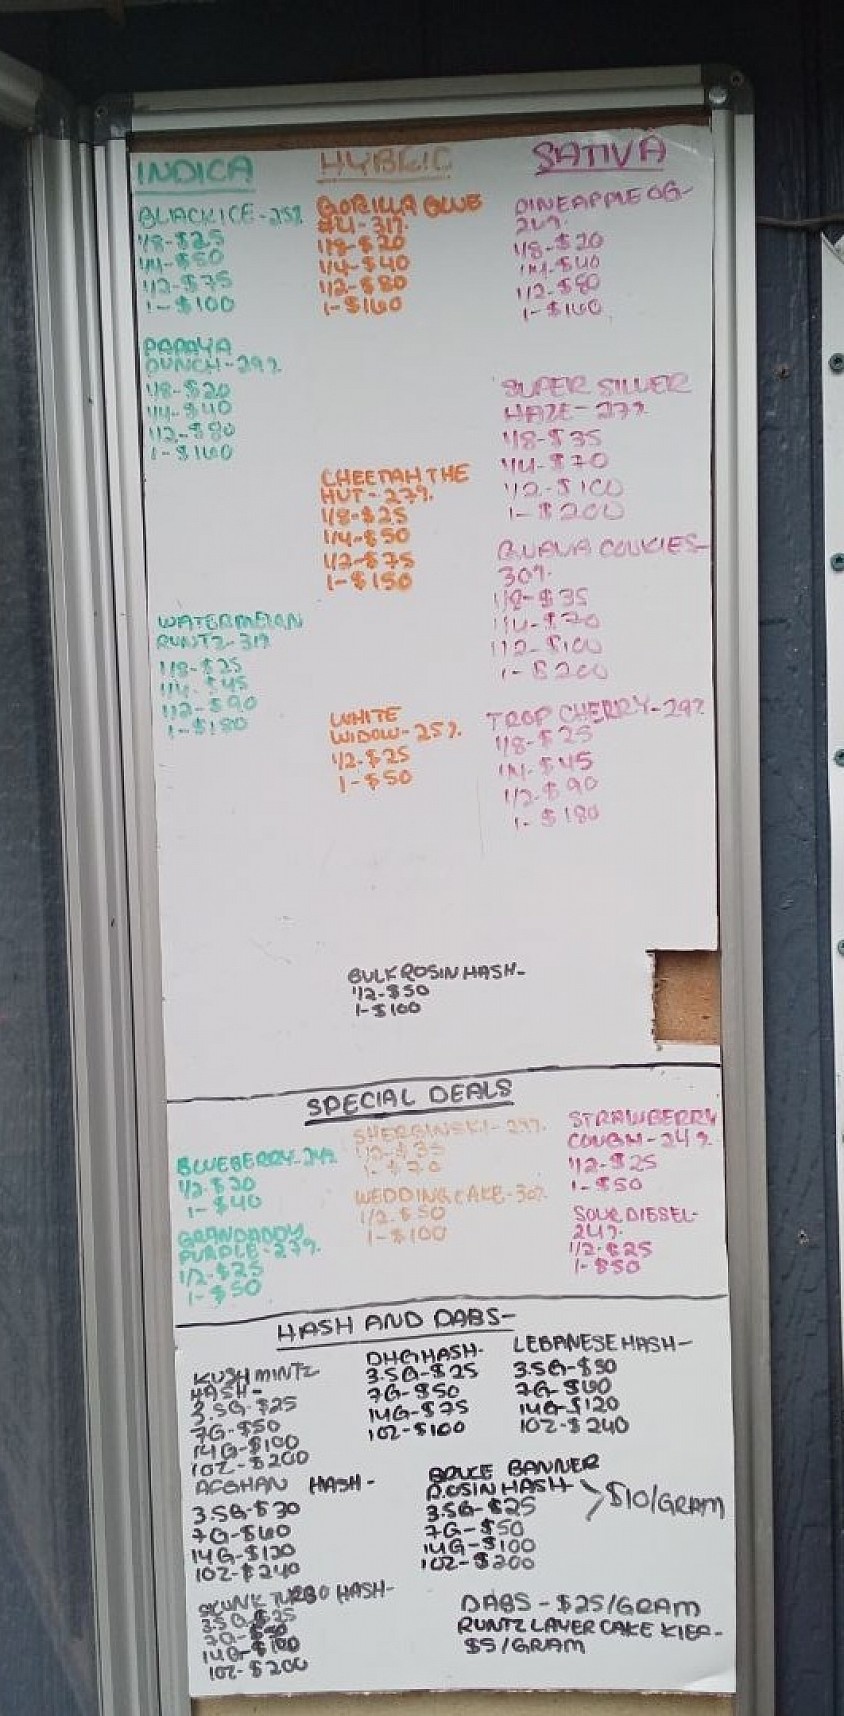 INDICA
BLACK ICE-25%
1/8-$25
1/4-$50
1/2-$75
1-$100
PAPAYA
PUNCH-29%
1/8-$20
1/4-$40
1/2-$80
1-$160
WATERMELON
RUNTZ-31%
1/8-$25
1/4-$45
1/2-$90
1-$180
HYBRID
GORILLA GLUE
#4-31%
1/8-$20
1/4-$40
1/2-$80
1-$160
CHEETAH THE
HUT-27%
1/8-$25
1/4-$50
1/2-$75
1-$150
WHITE
WIDOW-25%
1/2-$25
1-$50
SATIVA
PINEAPPLE OG-
26%
1/8-$20
1/4-$40
1/2-$80
1-$160
SUPER SILVER
HAZE-27%
1/8-$35
1/4-$70
1/2-$100
1-$200
GUAVA COOKIES-
30%
1/8-$35
1/4-$70
1/2-$100
1-$200
TROP CHERRY-29%
1/8-$25
1/4-$45
1/2-$90
1-$180
BULK ROSIN HASH-
1/2-$50
1-$100
SPECIAL DEALS
BLUEBERRY-24%
1/2-$20
1-$40
GRANDADDY
PURPLE-27%
1/2-$25
1-$50
SHERBINSKI-29%
1/2-$35
1-$70
WEDDING CAKE-30%
1/2-$50
1-$100
STRAWBERRY
COUGH-24%
1/2-$25
1-$50
SOUR DIESEL-
24%
1/2-$25
1-$50
HASH AND DABS-
KUSH MINTZ
HASH-
3.5G-$25
7G-$50
14G-$100
1OZ-$200
DHG HASH-
3.5G-$25
7G-$50
14G-$75
1OZ-$100
LEBANESE HASH-
3.5G-$30
7G-$60
14G-$120
1OZ-$240
AFGHAN HASH-
3.5G-$30
7G-$60
14G-$120
1OZ-$240
BRUCE BANNER
ROSIN HASH
3.5G-$25
7G-$50
14G-$100
1OZ-$200
>$10/GRAM
SKUNK TURBO HASH-
3.5G-$25
7G-$50
14G-$100
1OZ-$200
DABS-$25/GRAM
RUNTZ LAYER CAKE KIEF-
$5/GRAM